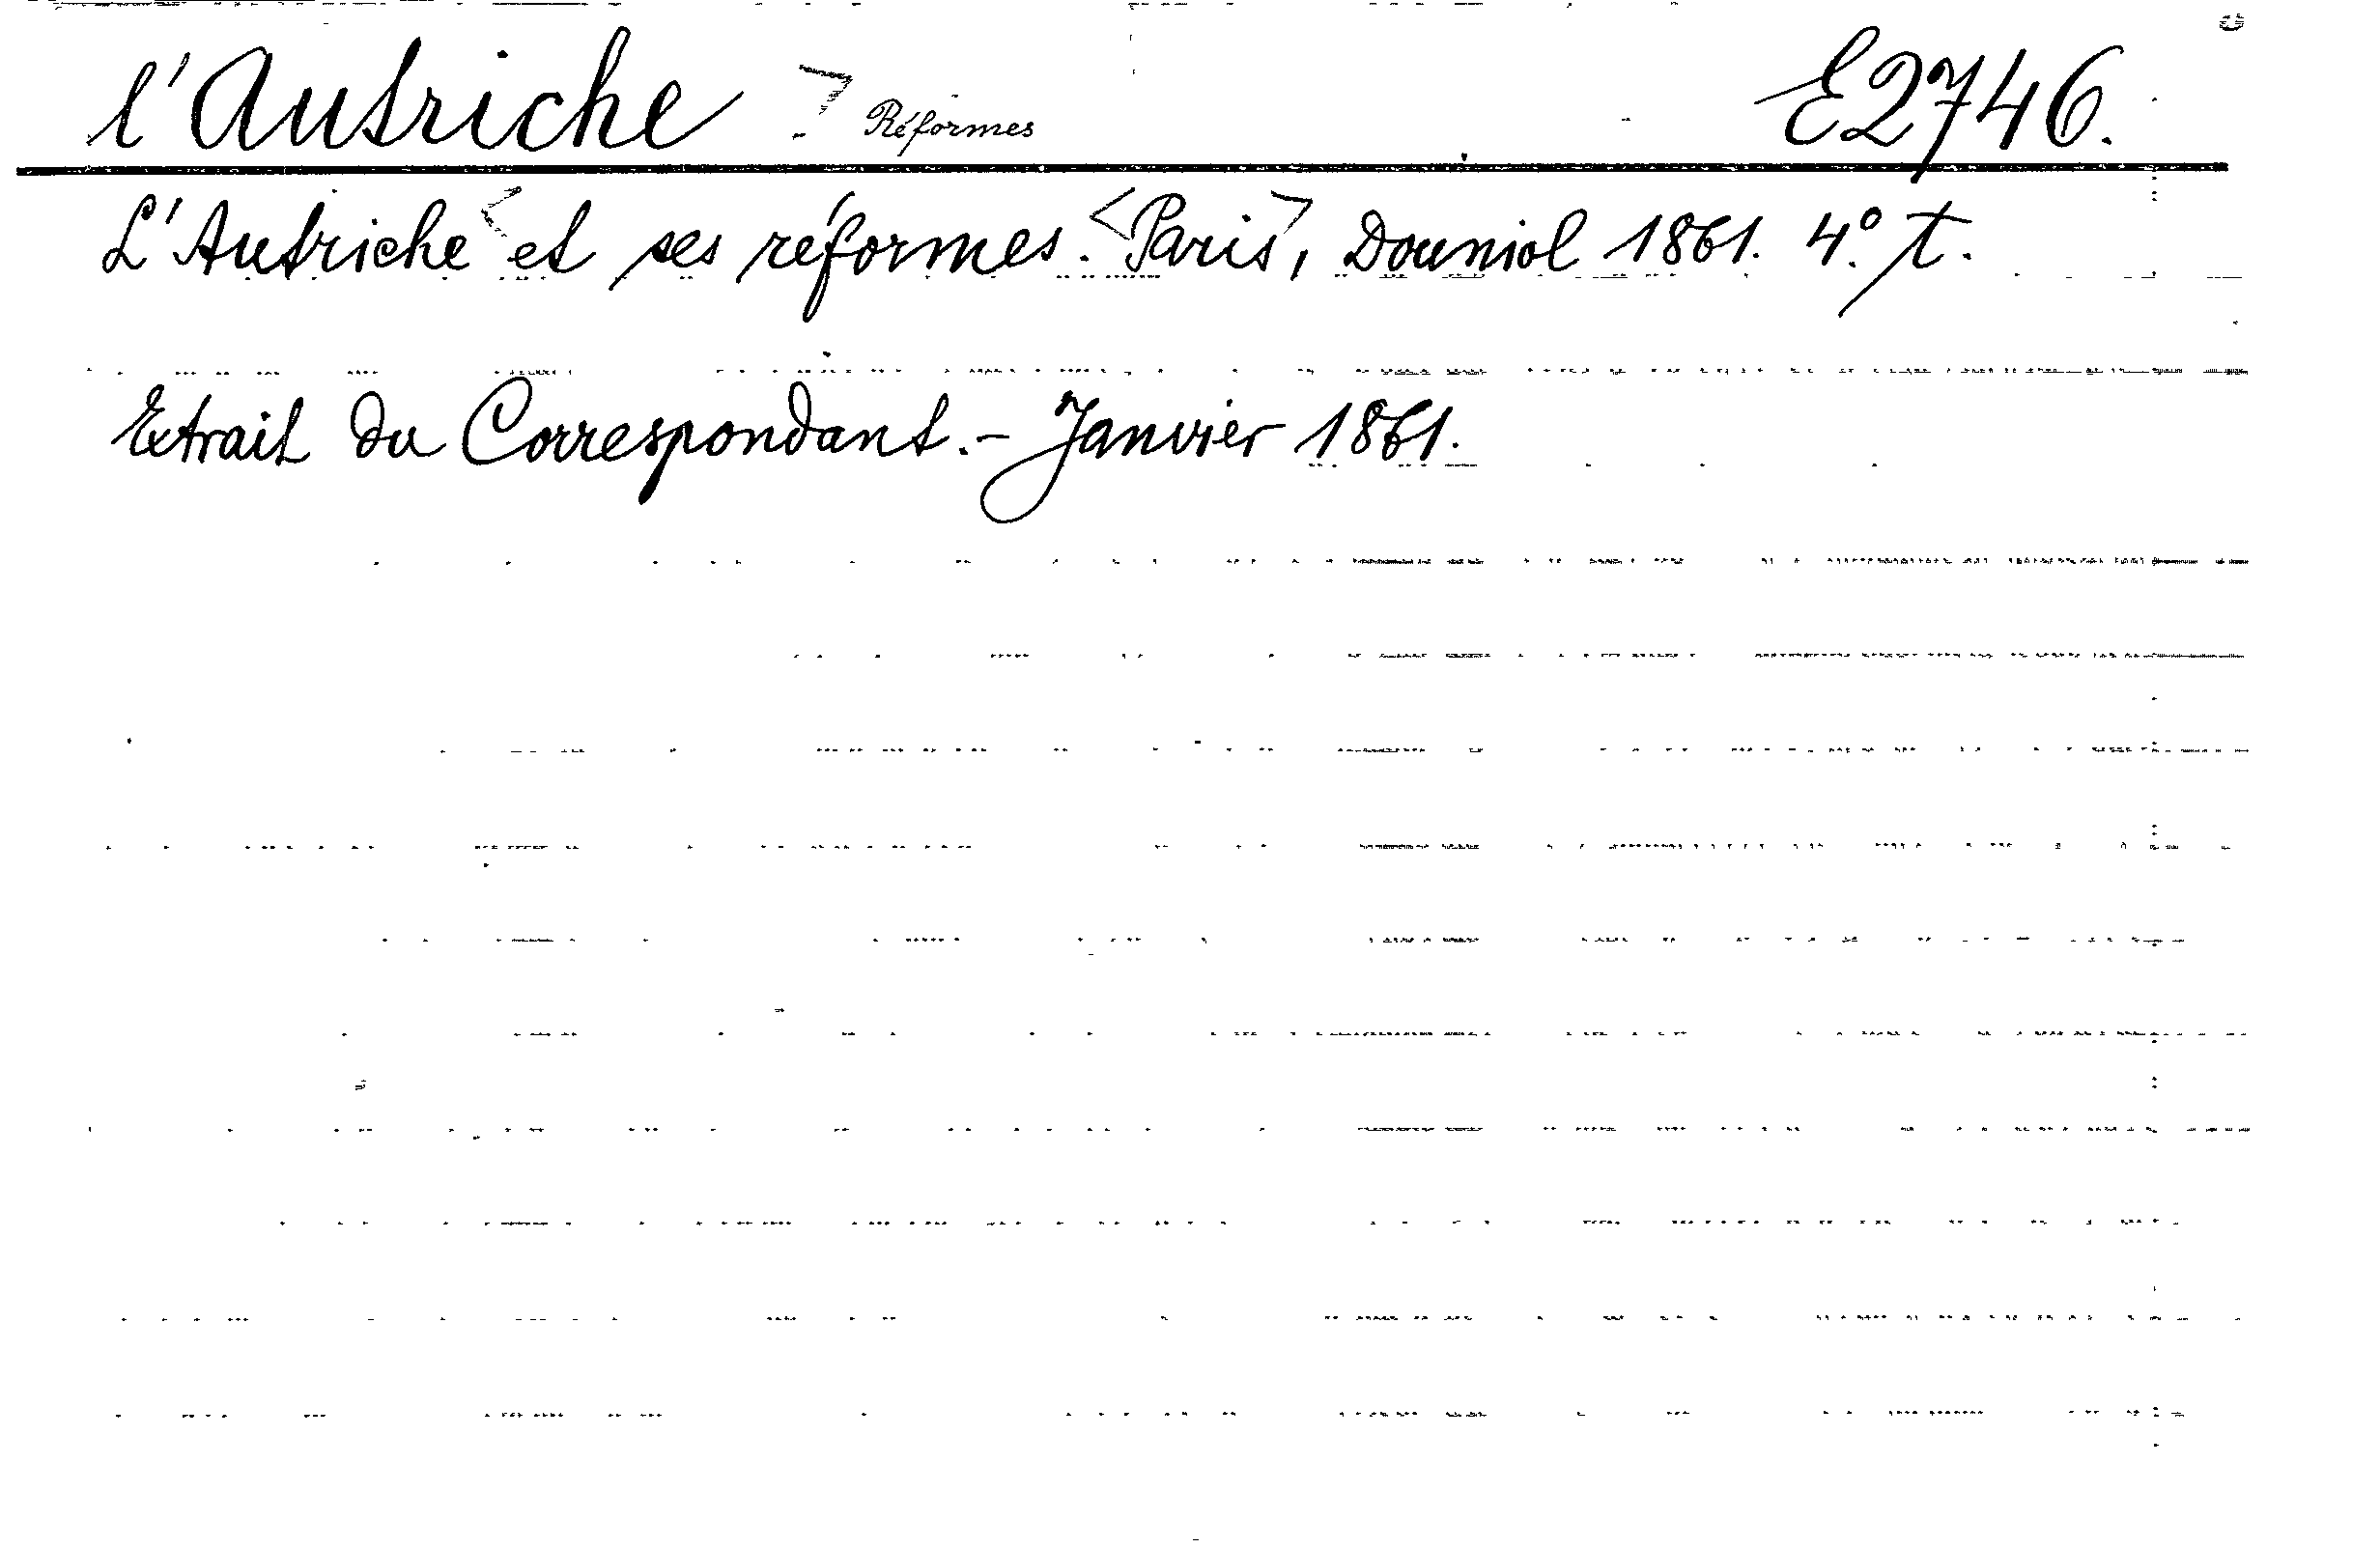 l'Autriche > Réformes E2746.
L'Autriche < et ses réformes. <Paris>, Douniol 1861. 4.° t.
Extrait du Correspondant. – Janvier 1861.